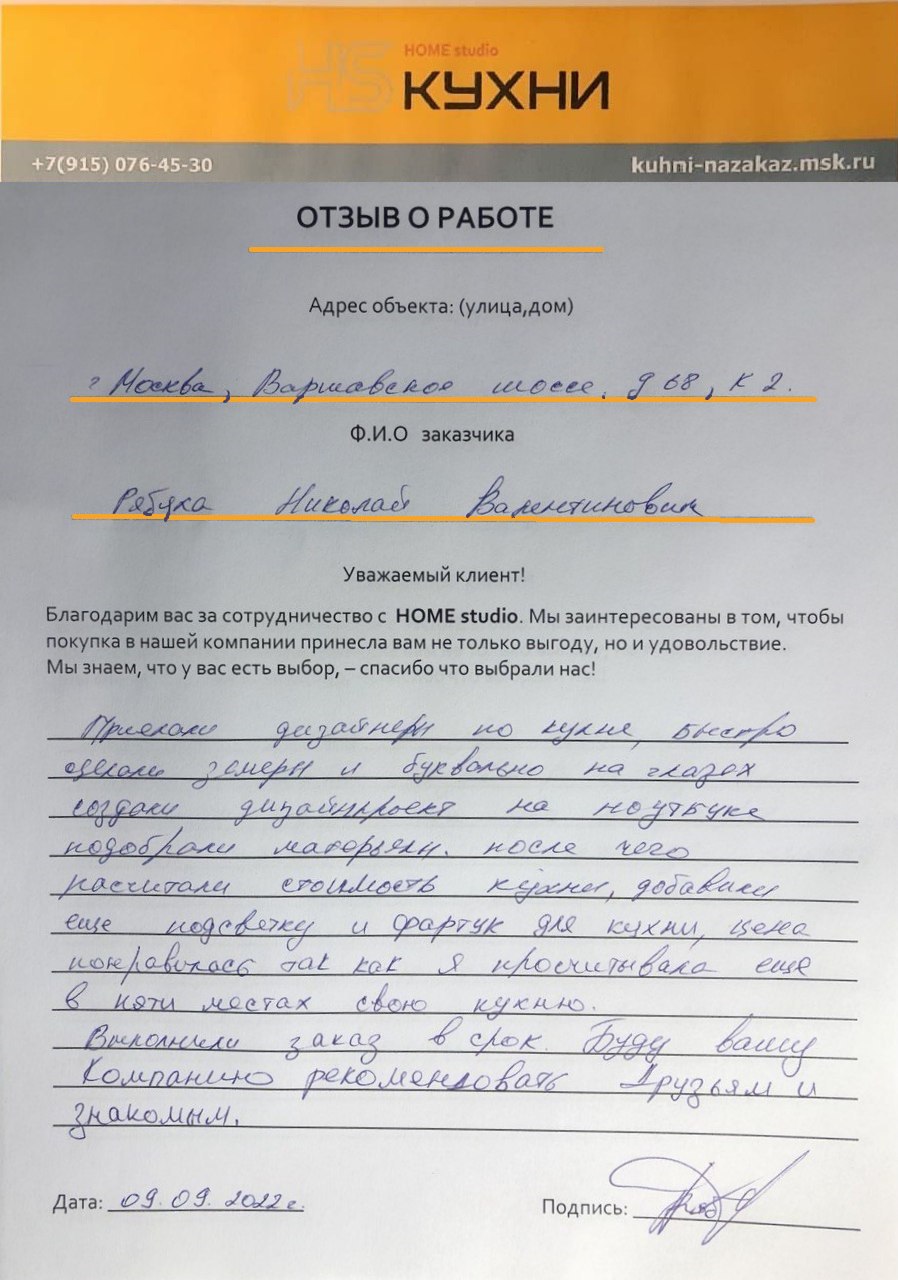 HS HOME studio
КУХНИ
+7(915) 076-45-30 kuhni-nazakaz.msk.ru
ОТЗЫВ О РАБОТЕ
Адрес объекта: (улица,дом)
г Москва, Варшавское шоссе. д 68, к 2.
Ф.И.О заказчика
Николай Валентинович
Уважаемый клиент!
Благодарим вас за сотрудничество с HOME studio. Мы заинтересованы в том, чтобы
покупка в нашей компании принесла вам не только выгоду, но и удовольствие.
Мы знаем, что у вас есть выбор, – спасибо что выбрали нас!
Приехали дизайнеры по кухне, быстро
сделали замеры и буквально на глазах
создали дизайнпроект на ноутбуке
подобрали матерьялы. после чего
расчитали стоимость кухни, добавили
еще подсветку и фартук для кухни, цена
понравилась так как я просчитывала еще
в пяти местах свою кухню.
Выполнили заказ в срок. Буду вашу
Компанию рекомендовать Друзьям и
знакомым.
Дата: 09.09.2022г. Подпись: